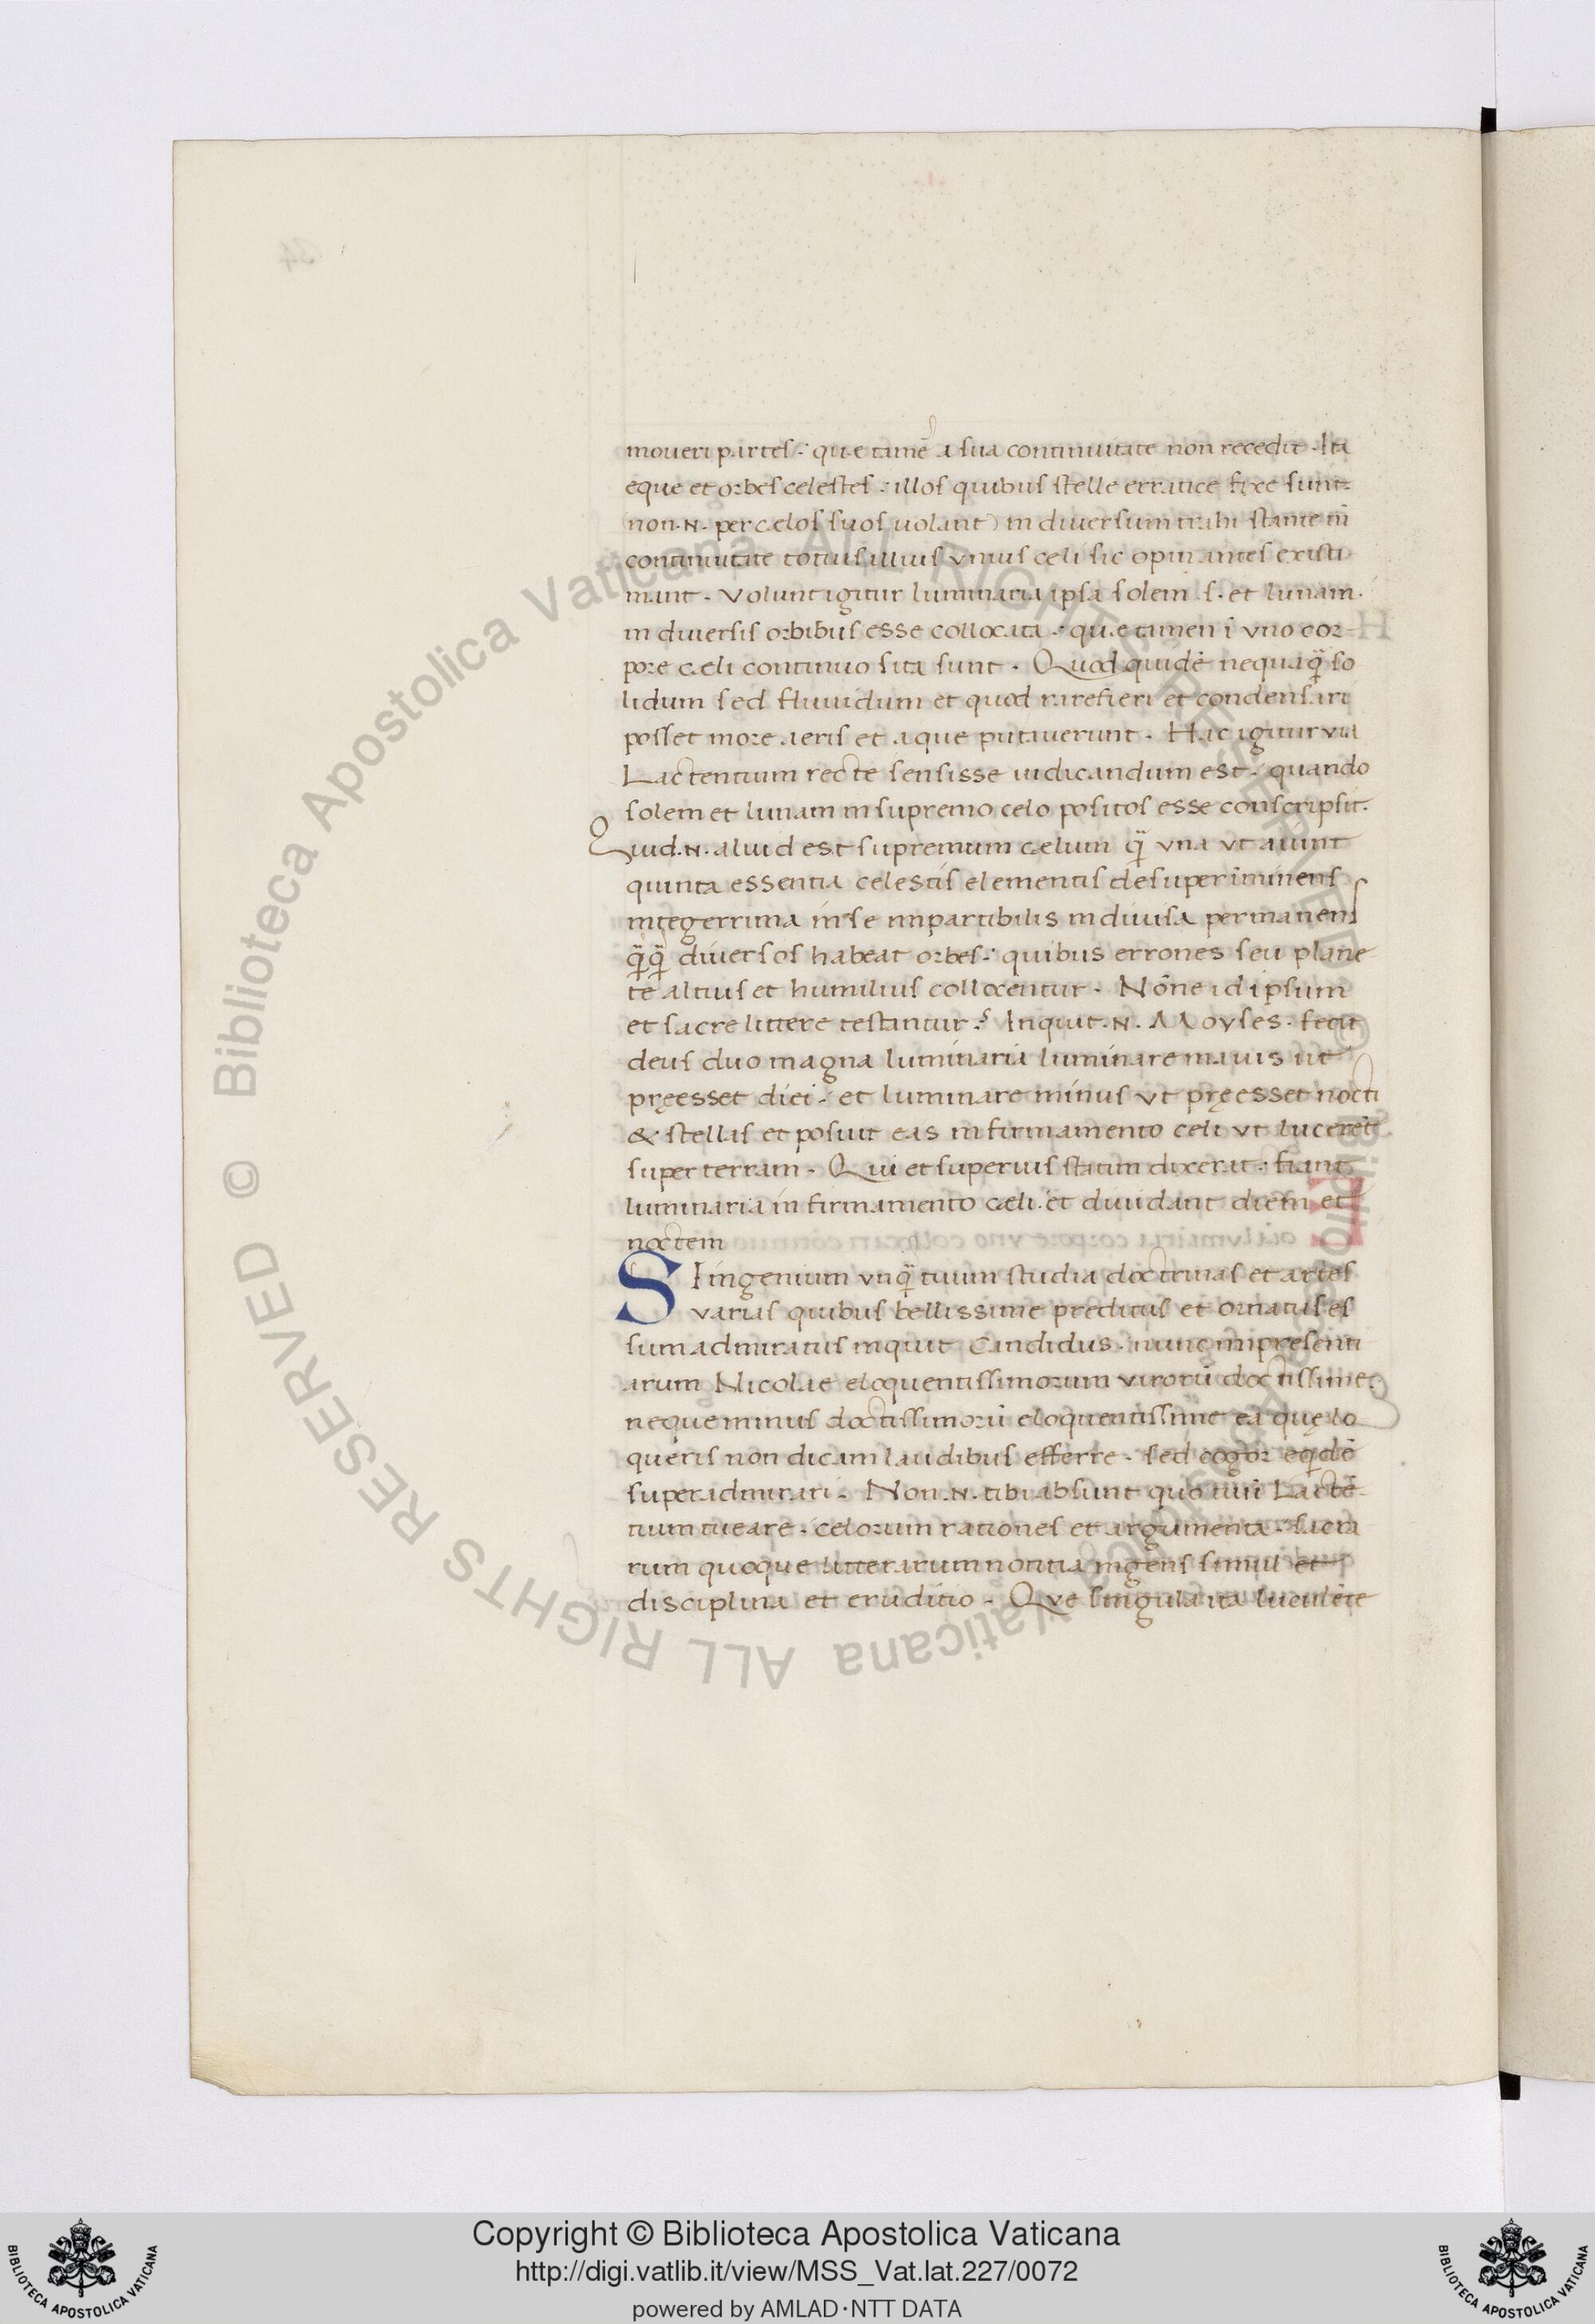 moueri partes: que tamē a sua continuitate non recedit. Ita
eque et orbes celestes: illos quibus stelle erratice fixe sunt
(non .N. per celos suos uolant) in diuersum trahi stante in
continuitate totius illius vnius celi sic opinantes existi
mant. Volunt igitur luminaria ipsa solem .s. et lunam.
in diuersis orbibus esse collocata: que tamen ī vno cor-
pore cæli continuo sita sunt. Quod quidē nequaq̄ so
lidum sed fluuidum et quod rarefieri et condensari
posset more aeris et aque putauerunt. Hac igitur via
Lactentium recte sensisse iudicandum est: quando
solem et lunam in supremo celo positos esse conscripsit.
Quid .N. aliud est supremum cælum q̄ vna vt aiunt
quinta essentia celestis elementis desuper iminens
integerrima in se impartibilis indiuisa permanens
q̄q̄ diuersos habeat orbes: quibus errones seu plane
te altius et humilius collocentur. Nōne id ipsum
et sacre littere testantur? Inquit .N. Moyses. fecit
deus duo magna luminaria luminare maius ut
pręesset diei: et luminare minus vt pręesset nocti
& stellas et posuit eas in firmamento celi vt lucerēt
super terram. Qui et superius statim dixerat: fiant
luminaria in firmamento cæli. et diuidant diem et
noctem
SI ingenium vnq̄ tuum studia doctrinas et artes
varias quibus bellissime preditus et ornatus es
sum admiratus inquit Candidus. nunc inpresenti
arum Nicolae eloquentissimorum virorū doctissime:
neque minus doctissimorū eloquentissime ea quę lo
queris non dicam laudibus efferre. sed cogor eqdē
superadmirari. Non .N. tibi absunt quo tuū Lactē
tium tueare. celorum rationes et argumenta. sacra
rum quoque litterarum notitia ingens simul et
disciplina et eruditio. Que singula ita luculēte
Copyright © Biblioteca Apostolica Vaticana
http://digi.vatlib.it/view/MSS_Vat.lat.227/0072
powered by AMLAD·NTT DATA